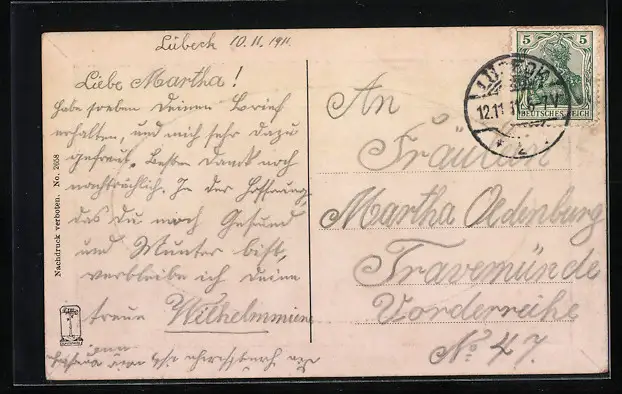 Lübeck 10.11.1911.
Liebe Martha!
Habe soeben Deinen Brief
erhalten, und mich sehr dazu
gefreut. Besten Dank noch
nachträchlich. In der Hoffnung,
das Du noch Gesund
und Munter bist,
verbleibe ich Deine
treue Wilhelmmiene
An
Fräulein
Martha Oldenburg
Travemünde
Vorderreihe
No. 47.
5 5
DEUTSCHES REICH
LÜBECK
12.11.11. 6-7 V
* 2
Nachdruck verboten. No. 2658